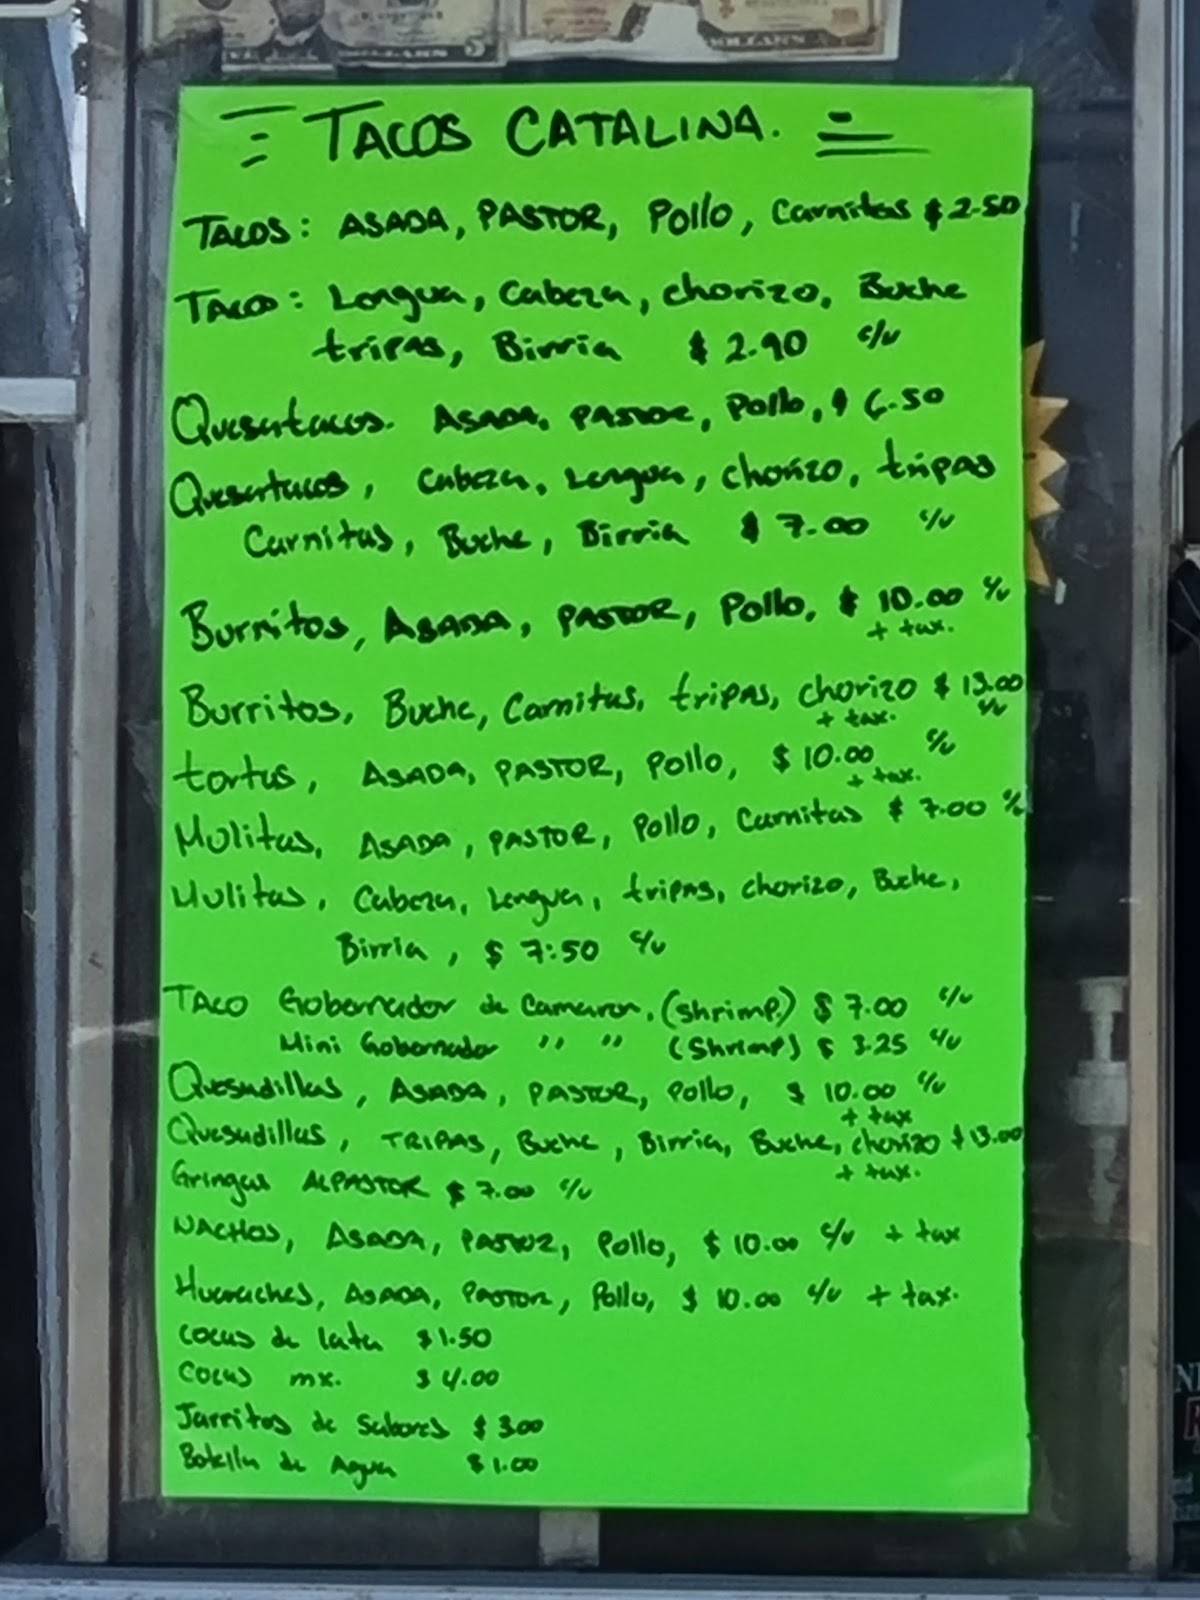 TACOS CATALINA.
TACOS: ASADA, PASTOR, Pollo, Carnitas $2.50
TACO: Lengua, Cabeza, chorizo, Buche
tripas, Birria $2.90 c/u
Quesatacos. ASADA, PASTOR, Pollo, $6.50
Quesatacos, Cabeza, Lengua, chorizo, tripas
Carnitas, Buche, Birria $7.00 c/u
Burritos, ASADA, PASTOR, Pollo, $10.00 c/u
+ tax.
Burritos, Buche, Carnitas, tripas, chorizo $13.00
+ tax. c/u
tortas, ASADA, PASTOR, Pollo, $10.00 c/u
+ tax.
Mulitas, ASADA, PASTOR, Pollo, Carnitas $7.00 c/u
Mulitas, Cabeza, Lengua, tripas, chorizo, Buche,
Birria, $7:50 c/u
TACO Gobernador de Camaron. (Shrimp.) $7.00 c/u
Mini Gobernador " " (Shrimp) $3.25 c/u
Quesadillas, ASADA, PASTOR, Pollo, $10.00 c/u
+ tax
Quesadillas, TRIPAS, Buche, Birria, Buche, chorizo $13.00
+ tax.
Gringas ALPASTOR $7.00 c/u
NACHOS, ASADA, PASTOR, Pollo, $10.00 c/u + tax
Huaraches, ASADA, PASTOR, Pollo, $10.00 c/u + tax.
Cocas de lata $1.50
Cocas mx. $4.00
Jarritos de Sabores $3.00
Botella de Agua $1.00